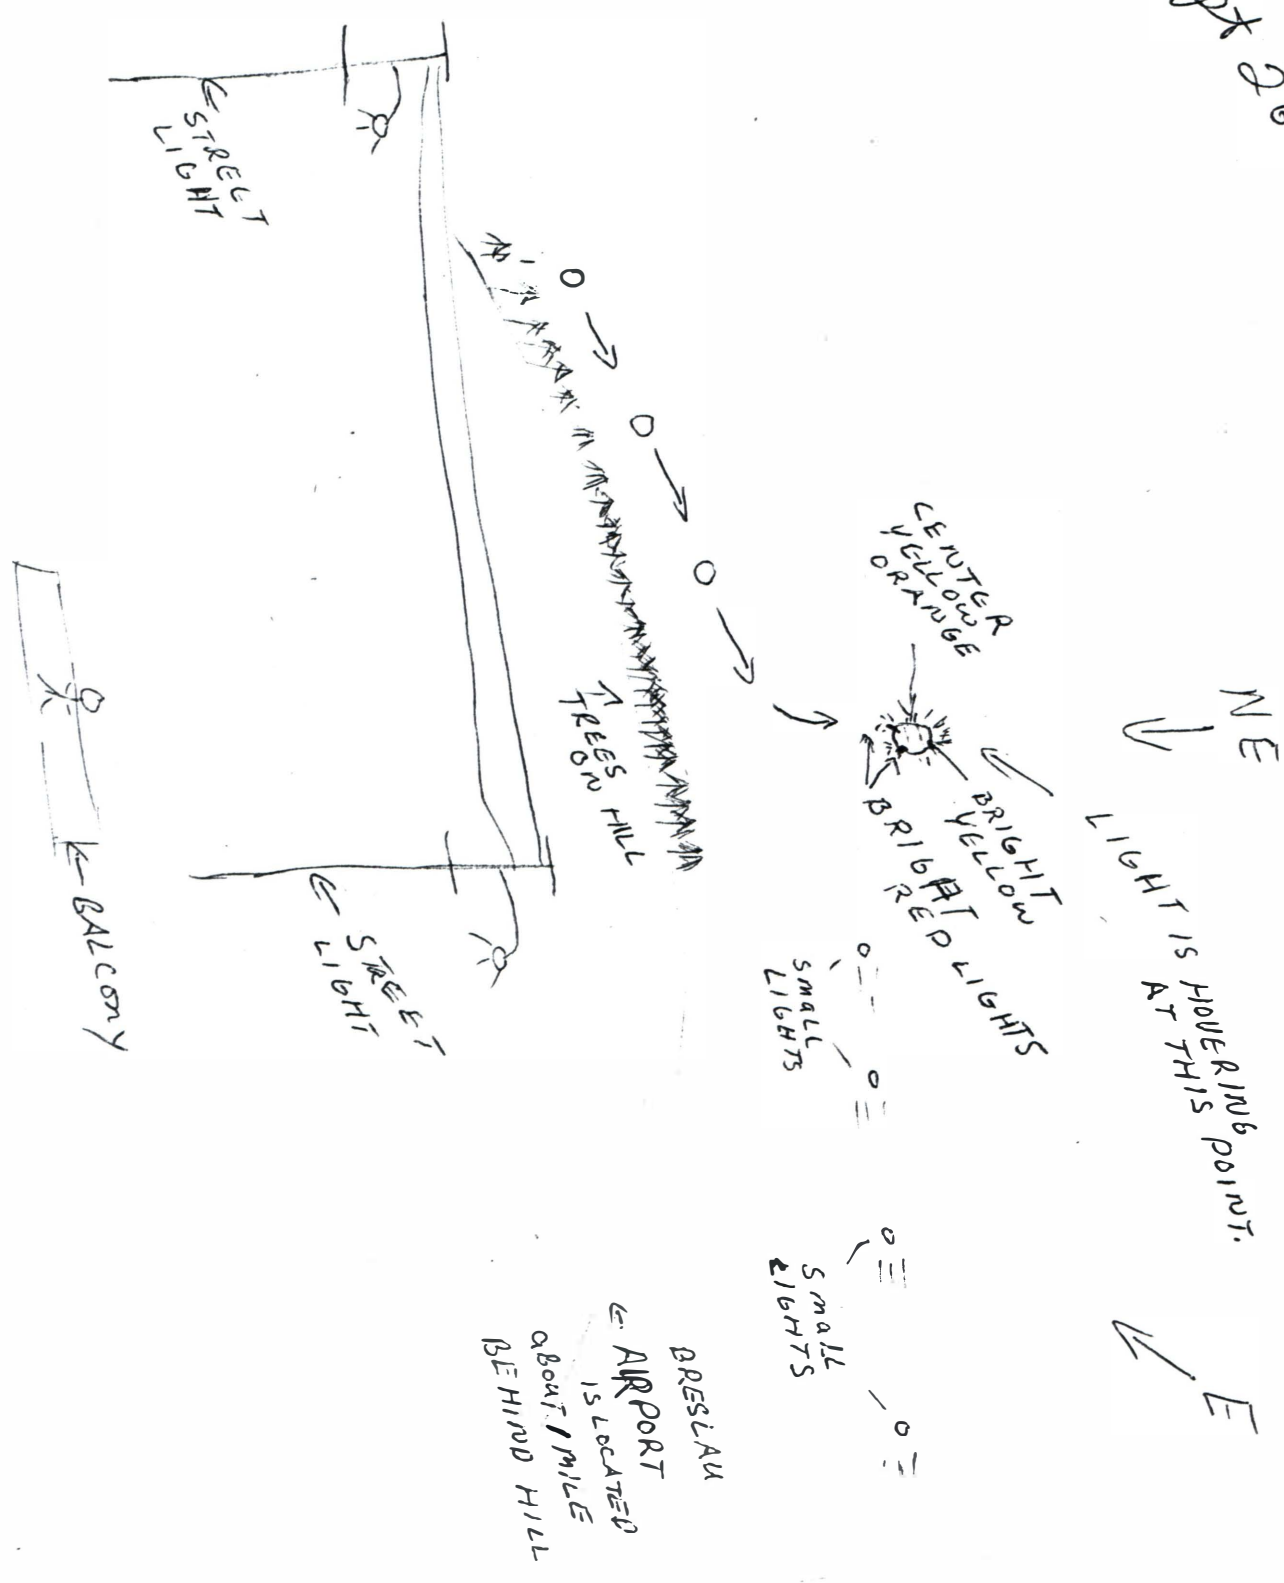 NE
E
LIGHT IS HOVERING
AT THIS POINT.
CENTER
YELLOW
ORANGE
BRIGHT
YELLOW
BRIGHT
RED LIGHTS
SmaLL
LIGHTS
SmaLL
LIGHTS
BRESLAU
AIRPORT
IS LOCATED
aBOUT 1 MILE
BEHIND HILL
TREES
ON HILL
STREET
LIGHT
STREET
LIGHT
BALCONY